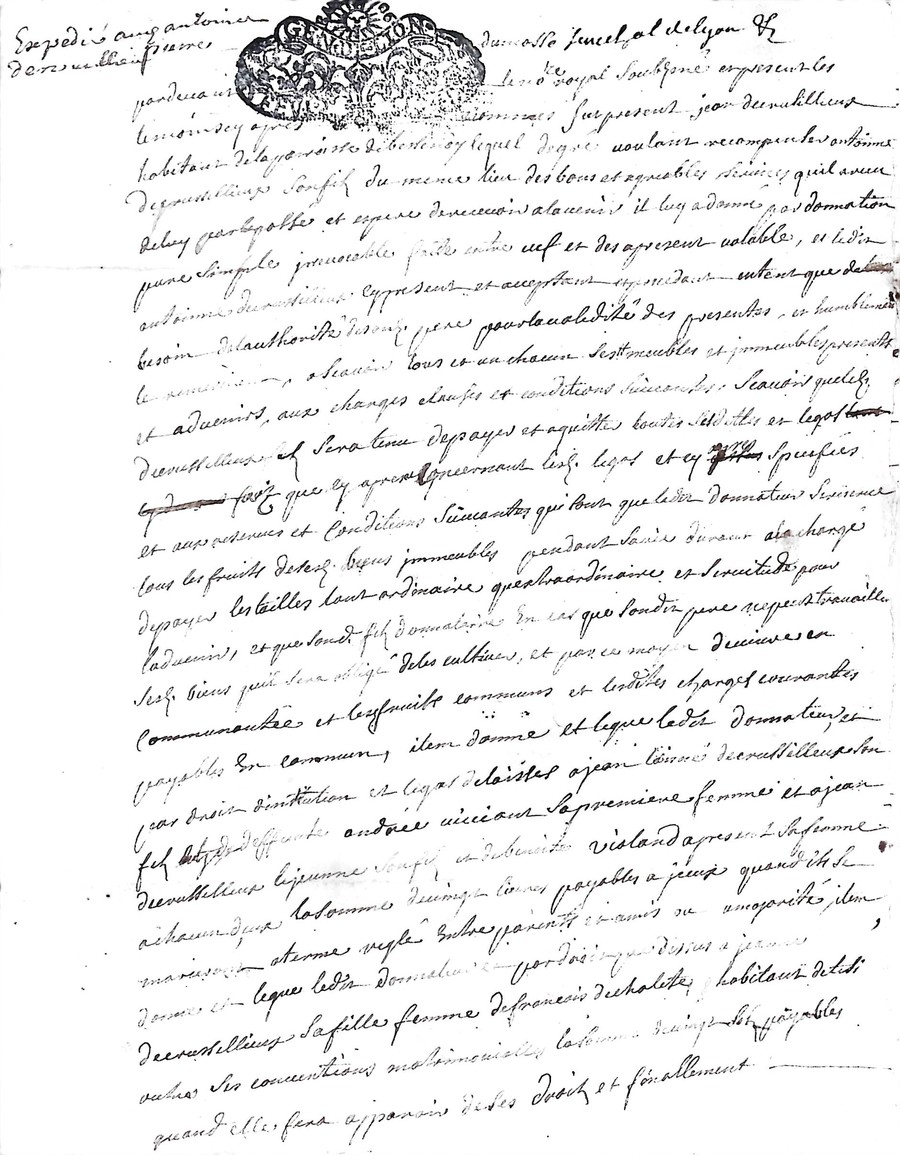 Expedié aud antoine
decrussillieux
GEN DE LION
dumasse senechal de lyon &
pardevant le no.re royal soubsigné et present les
temoins cy apres nommes fut present jean decrussillieux
habitant de la parroisse de bessenay lequel de gre voulant recompenser antoinne
decrussillieux son filz du meme lieu des bons et agreables services quil a receu
de luy par le passe et espere de recevoir a lavenir il luy a donné par donnation
pure simple irrevocable faite entre vif et des apresent valable, et ledit
antoinne decrussillieux cy present et acceptant et procedant entent que de
besoin de lauthorité desond. pere pour la validité des presentes, et humblement
le remerciant, a scavoir tous et un chacun ses meubles et immeubles presents
et advenirs, aux charges clauses et conditions suivantes, scavoir que led.
decrussillieux filz sera tenu de payer et aquitter toutes ses dettes et legas
fait que cy apres concernant lesd. legas et cy apres specifiés
et aux reserves et conditions suivantes qui sont que ledit donnateur se reserve
tous les fruits desesd. biens immeubles pendant sa vie durant a la charge
de payer les tailles tant ordinaire que extraordinaire et servitude pour
ladvenir, et que sond. filz donnataire en cas que sondit pere ne peut travailler
sesd. biens quil sera obligé de les cultiver, et par ce moyen de vivre en
communautée et les fruits communs et lesdites charges courantes
payables en commun, item donne et legue ledit donnateur, et
par droit dinstitution et legas delaisse a jean lainné decrussillieux son
filz et de deffunte andrée viciant sa premiere femme et a jean
decrussillieux le jeunne son filz et de benoite violand apresent sa femme
a chacun deux la somme de vingt livres payables a jceux quand ils se
marieront a terme reglé entre parents et amis ou a majorité, item
donne et legue ledit donnateur et par droit que dessus a jeanne
decrussillieux sa fille femme de francois dechalete habitant de
outre ses conventions matrimonialles la somme de vingt sols payables
quand elle fera apparoir de ses droits et finallement